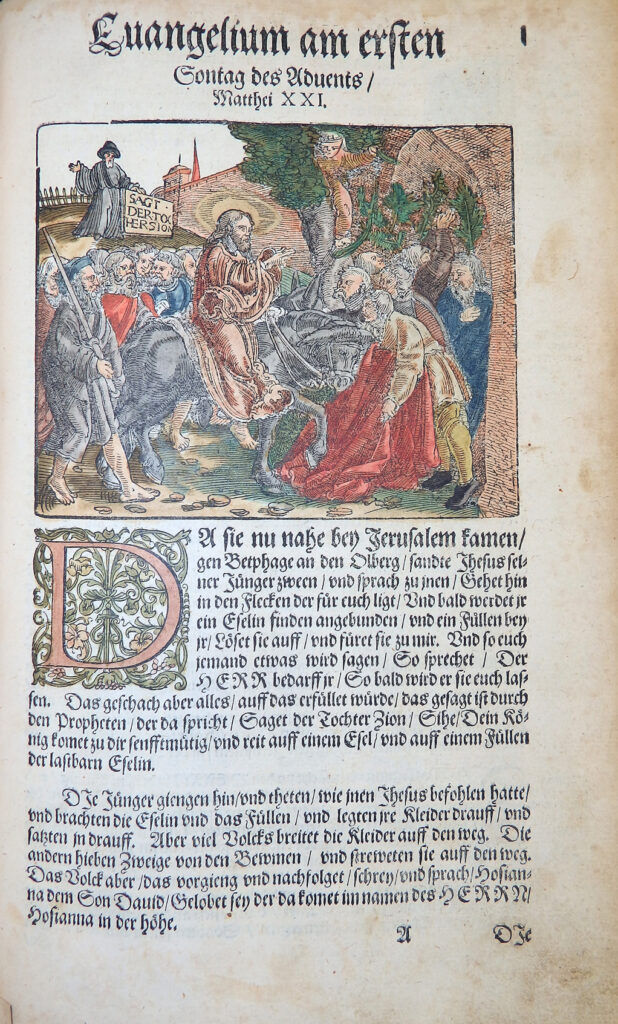 Euangelium am ersten
1
Sontag des Aduents/
Matthei XXI.
SAGT
DER TOC
HER SION
DA sie nu nahe bey Jerusalem kamen/
gen Betphage an den Olberg/ sandte Jhesus sei-
ner Jünger zween/ vnd sprach zu jnen/ Gehet hin
in den Flecken der für euch ligt/ Vnd bald werdet jr
ein Eselin finden angebunden/ vnd ein Füllen bey
jr/ Löset sie auff/ vnd füret sie zu mir. Vnd so euch
jemand etwas wird sagen/ So sprechet/ Der
HERR bedarff jr/ So bald wird er sie euch las-
sen. Das geschach aber alles/ auff das erfüllet würde/ das gesagt ist durch
den Propheten/ der da spricht/ Saget der Tochter Zion/ Sihe/ Dein Kö-
nig komet zu dir senfftmütig/ vnd reit auff einem Esel/ vnd auff einem Füllen
der lastbarn Eselin.
DIe Jünger giengen hin/ vnd theten/ wie jnen Jhesus befohlen hatte/
vnd brachten die Eselin vnd das Füllen/ vnd legten jre Kleider drauff/ vnd
satzten jn drauff. Aber viel Volcks breitet die Kleider auff den weg. Die
andern hieben Zweige von den Bewmen/ vnd streweten sie auff den weg.
Das Volck aber/ das vorgieng vnd nachfolget/ schrey/ vnd sprach/ Hosian-
na dem Son Dauid/ Gelobet sey der da komet im namen des HERRN/
Hosianna in der höhe.
A
DIe